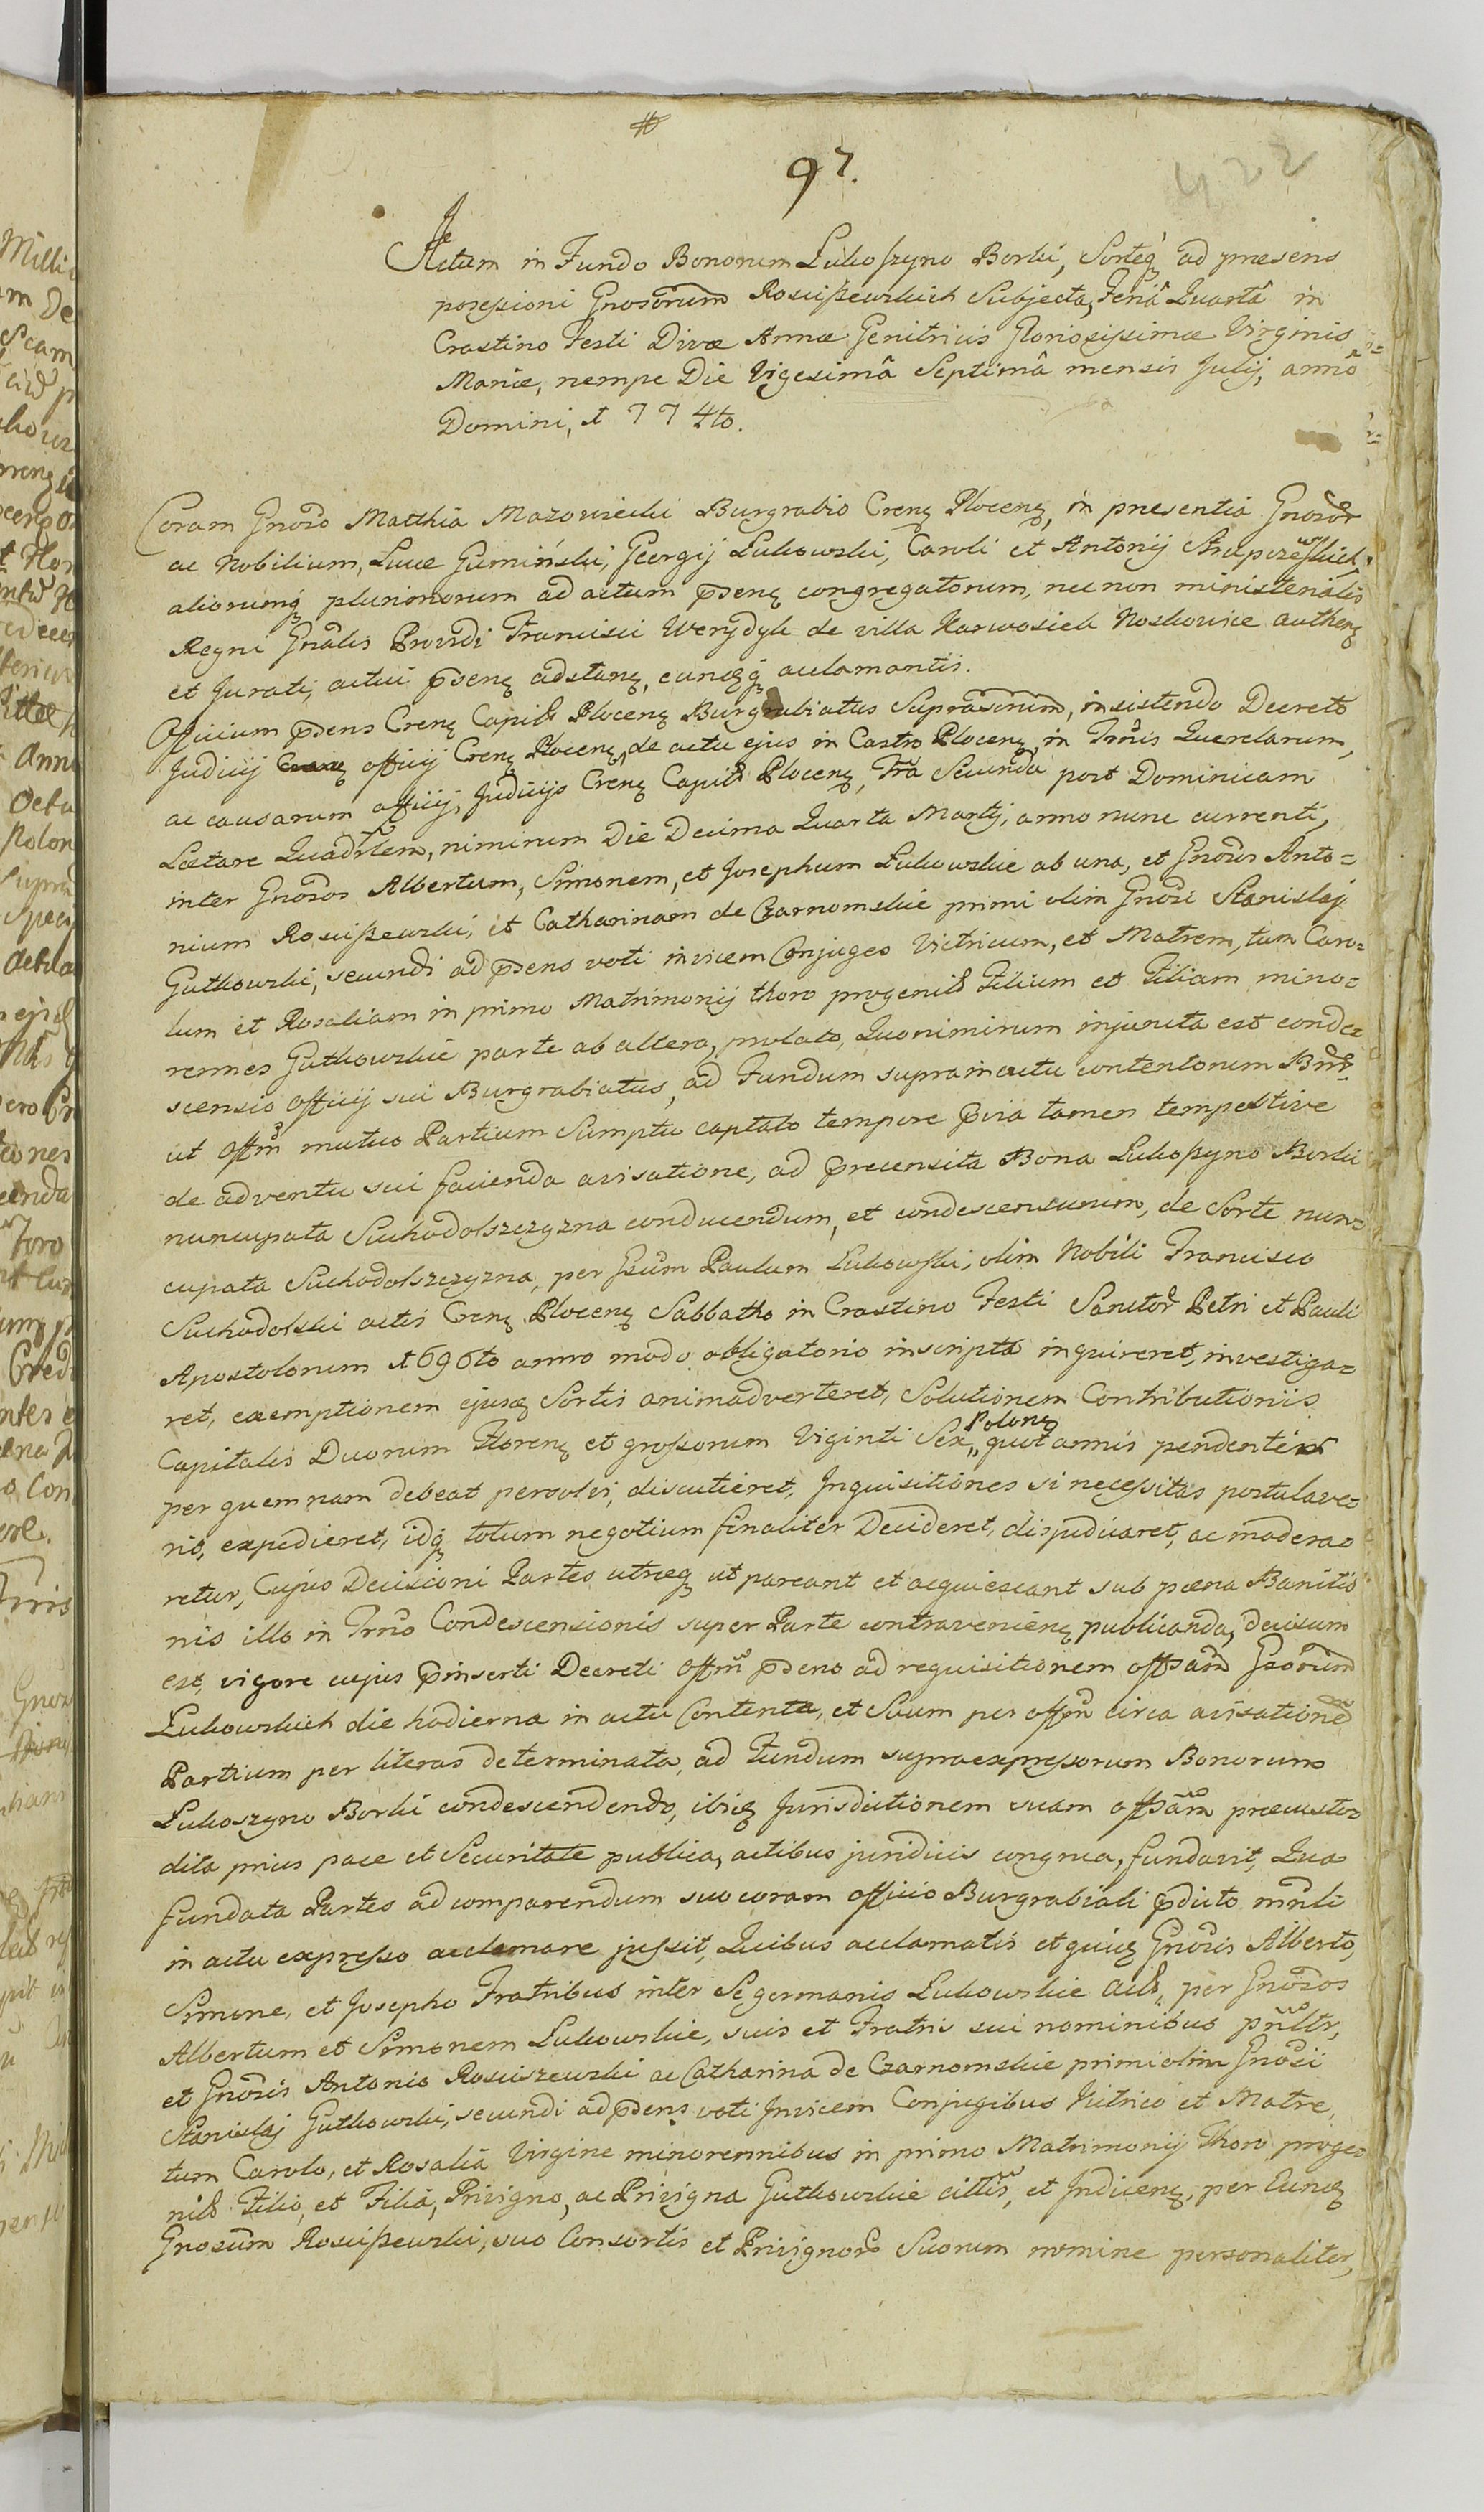 97.
422
Actum in Fundo Bonorum Lukoszyno Borki, Sorteq ad presens
possessioni Gnosorum Rosciszewskich Subjecta, Feria Quartâ in
Crastino Festi Divæ Annæ Genitricis Gloriosissimæ Virginis
Mariæ, nempe Die Vigesimâ Septimâ mensis Julij, anno
Domini, 1774to.
Coram Gnoso Matthia Mazowiecki Burgrabio Crenꝫ Plocenꝫ, in presentia Gnosor
ac Nobilium, Lucæ Gumiński, Georgij Lukowski, Caroli et Antonij
aliorumq plurimorum ad actum pdenꝫ congregatorum, nec non ministerialis
Regni Gnalis Provdi Francisci Werydyk de villa Karwosiek Noskowice authenꝫ
et Jurati, actui pdenꝫ adstanꝫ, eunqꝫ acclamantis.
Officium pdens Crenꝫ Capitlis Plocenꝫ Burgrabiatus Suprascrium, insistendo Decreto
Judicij officij Crenꝫ Plocenꝫ, de actu ejus in Castro Plocenꝫ, in Trmis Querelarum,
ac causarum officij, Judicijs Crenꝫ Capitlis Plocenꝫ, Fria Secunda post Dominicam
Lætare Quadrlem, nimirum Die Decima Quarta Martij, anno nunc currenti,
inter Gnosos Albertum, Simonem, et Josephum Lukowskie ab una, et Gnosos Anto=
nium Rosciszewski, et Catharinam de Czarnomskie primi olim Gnosi Stanislaj
Gutkowski, secundi ad pdens voti invicem Conjuges Victricum, et Matrem, tum Caro=
lum et Rosaliam in primo Matrimonij thoro progenits Filium et Filiam mino=
rennes Gutkowskie parte ab altera, prolato, Quo nimirum injuncta est conde=
scensio officij sui Burgrabiatus, ad Fundum supra in actu contentorum Bnor
ut Offm mutuo Partium Sumptu captato tempore pvia tamen tempestive
de adventu sui facienda avisatione, ad precensita Bona Lukoszyno Borki
nuncupata Suchodolszczyzna conducendum, et condescensurum, de Sorte nun=
cupata Suchodolszczyzna, per Gsum Paulum Lukowski, olim Nobili Francisco
Suchodolski actis Crenꝫ Plocenꝫ Sabbatho in Crastino Festi Sanctor Petri et Pauli
Apostolorum 1696to anno modo obligatorio inscripta inquireret, investiga=
ret, exemptionem ejusꝫ Sortis animadverteret, Solutionem Contributionis
Capitalis Duorum Florenꝫ et grossorum Viginti Sex, Polonꝫ quot annis pendenti
per quemnam debeat persolvi, discutieret, Inquisitiones si necessitas postulave=
rit, expedieret, idq totum negotium finaliter Decideret, disjudicaret, ac modera=
retur, Cujus Decisioni Partes utræq ut pareant et acquiescant sub pœna Banitio
nis illo in Trno Condescensionis super Parte contravenienꝫ publicanda, decisum
est, vigore cujus pinserti Decreti Offm pdens ad requisitionem offsam Gsorum
Lukowskich die hodierna in actu Contenta, et Suum per offm circa avisatione
Partium per literas determinata, ad Fundum supraexpressorum Bonorum
Lukoszyno Borki condescendendo, ibiq Jurisdictionem suam offsam præcusto=
dita prius pace et Securitate publica, actibus juridicis congrua, fundavit, Qua
fundata Partes ad comparendum suo coram officio Burgrabiali pdicto mnli
in actu expresso acclamare jussit, Quibus acclamatis et quidꝫ Gnosis Alberto,
Simone, et Josepho Fratribus inter Se germanis Lukowskie Actis, per Gnosos
Albertum et Simonem Lukowskie, suis et Fratris sui nominibus pnltr,
et Gnosis Antonio Rosciszewski ac Catharina de Czarnomskie primi olim Gnosi
Stanislaj Gutkowski, secundi ad pdens voti Invicem Conjugibus Vitrico et Matre,
tum Carolo, et Rosaliâ Virgine minorennibus in primo Matrimonij Thoro proge=
nits Filio, et Filiâ, Privigno, ac Privigna Gutkowskie cittis, et Inducenꝫ, per Eunꝫ
Gnosum Rosciszewski, suo Consortis et Privignor Suorum nomine personaliter,